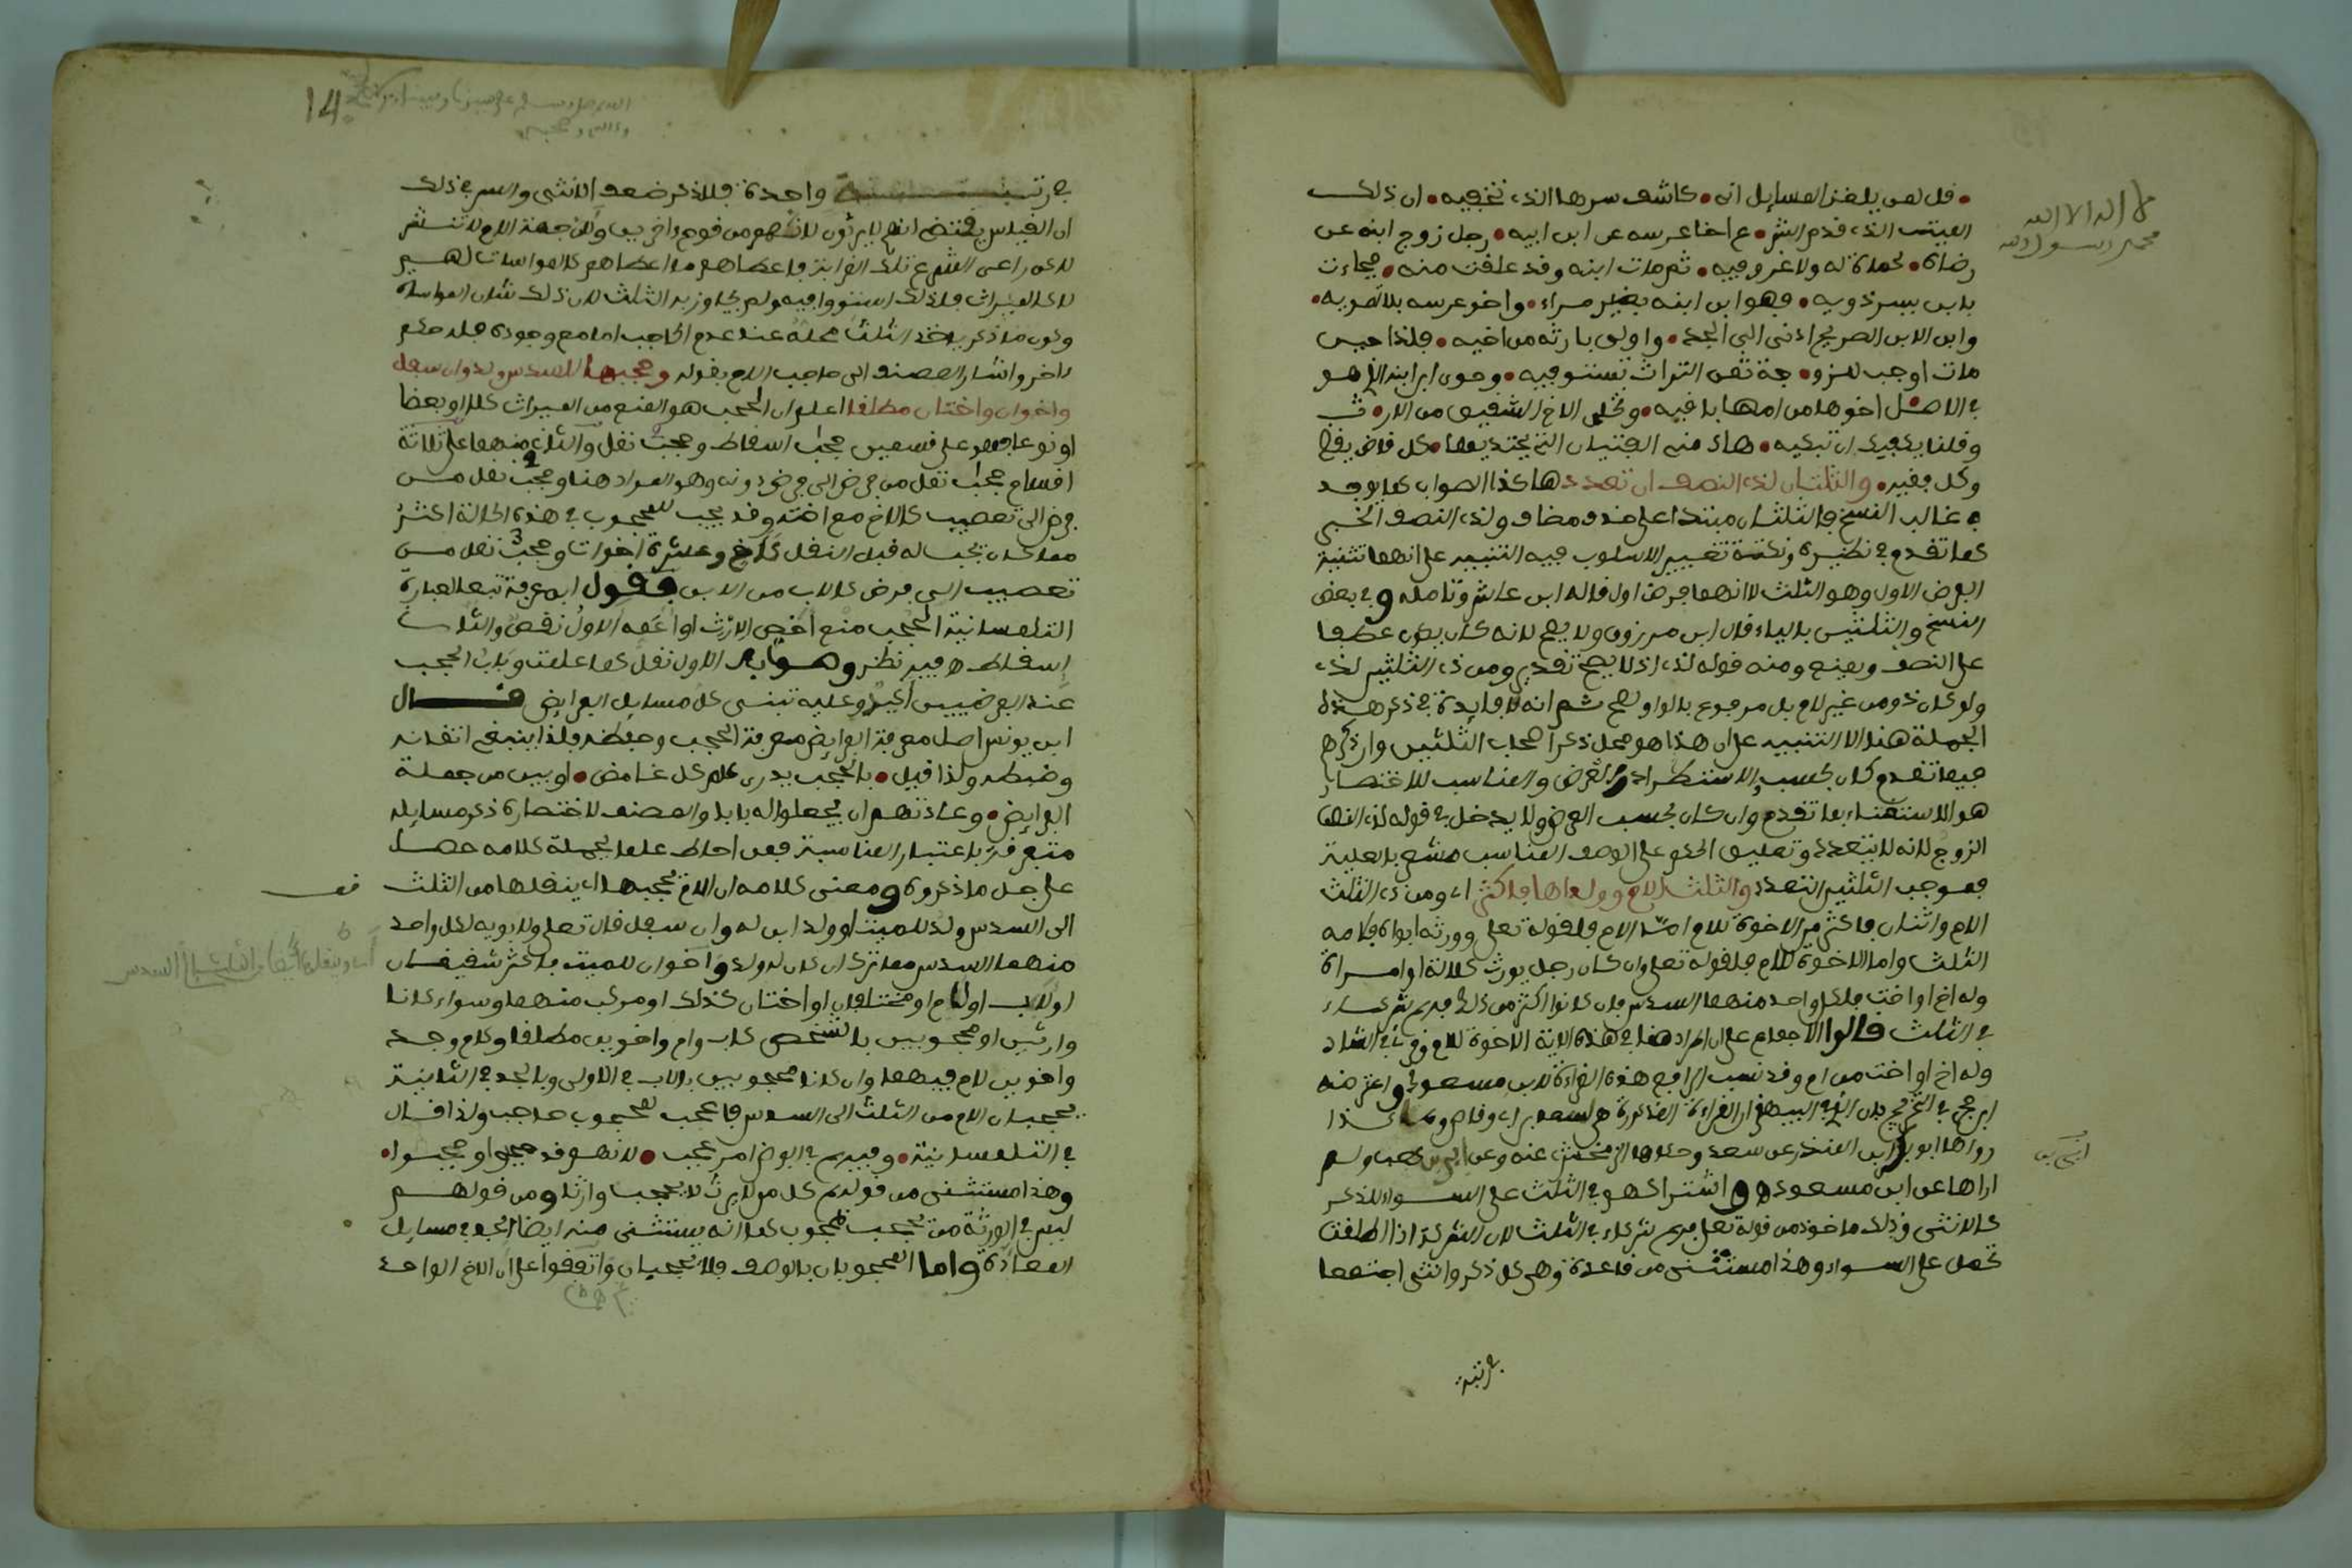 لا اله الا الله
محمد رسول الله
قل لمن يلغز المسايل انى • كاشف سرها الذى تخفيه • ان ذلك
الميت الذى قدم الشرع اخا عرسه على ابن ابيه • رجل زوج ابنه عن
رضاه • حماة له ولا غرو فيه • ثم مات ابنه وقد علقت منه • فجاءت
بابن يسر ذويه • فهو ابن ابنه بغير مراء • واخو عرسه بلا تمويه •
وابن الابن الصريح ادنى الى الجد • واولى بارثه من اخيه • فلذا حين
مات اوجب للزوجة ثمن التراث تستوفيه • وحوى ابن ابنه الذى هو
فى الاصل اخوها من امها باقيه • وتخلى الاخ الشقيق من الارث
وقلنا يكفيك ان تبكيه • هاك منى الفتيا التى يحتذيها • كل قاض يقضى
وكل فقيه • والثلثان لذى النصف ان تعدد هكذا الصواب كما يوجد
فى غالب النسخ فالثلثان مبتدا على حذف مضاف ولذى النصف الخبر
كما تقدم فى نظيره ونكتة تغيير الاسلوب فيه التنبيه على انهما تثنية
الفرض الاول وهو الثلث لا انهما فرض اول قاله ابن عاشر وتامله وفى بعض
النسخ والثلثين بالياء قال ابن مرزوق ولا يصح لانه كان يكون عطفا
على النصف ويمنع ومنه قوله لذى اذ لا يصح تقدير ومن ذى الثلثين لذى
ولو كان ذو من غير لام بل مرفوع بالواو لصح ثم انه لا فايدة فى ذكر هذه
الجملة هنا الا التنبيه على ان هذا هو محل ذكر اصحاب الثلثين وان ذكرهم
فيما تقدم كان بحسب الاستطراد والعرض والمناسب للاختصار
هو الاستغناء بما تقدم وان كان بحسب العرض ولا يدخل فى قوله لذى النصف
الزوج لانه لا يتعدد وتعليق الحكم على الوصف المناسب مشعر بالعلية
فموجب الثلثين التعدد والثلث لام وولداها فاكثر اى ومن ذى الثلث
الام واثنان فاكثر من الاخوة للام اما الام فلقوله تعلى وورثه ابواه فلامه
الثلث واما الاخوة للام فلقوله تعلى وان كان رجل يورث كلالة او امراة
وله اخ او اخت فلكل واحد منهما السدس فان كانوا اكثر من ذلك فهم شركاء
فى الثلث قالوا الاجماع على ان المراد هنا فى هذه الاية الاخوة للام وقرئ فى الشاذ
وله اخ او اخت من ام وقد نسب الرافعى هذه القراءة لابن مسعود واعترضه
ابن حجر فى التخريج بان الذى فى البيهقى ان القراءة المذكورة هى لسعد بن ابى وقاص وكذا
رواها ابو بكر ابن المنذر عن سعد وحكاها الزمخشرى عنه وعن ابى بن كعب ولم
اراها عن ابن مسعود هـ واشتراكهم فى الثلث على السواء للذكر
كالانثى وذلك ماخوذ من قوله تعلى فهم شركاء فى الثلث لان الشركة اذا اطلقت
تحمل على السواء وهذا مستثنى من قاعدة وهى كل ذكر وانثى اجتمعا
فى رتبة
14
فى رتبة واحدة فللذكر ضعف الانثى والسر فى ذلك
ان القياس يقتضى انهم لا يرثون لانهم من قوم اخرين ولان جهة الام لا تنتشر
لاكن راعى الشرع تلك القرابة فاعطاهم ما اعطاهم كالمواسات لهم
لا كالميراث فلذلك استووا فيه ولم يجاوز به الثلث لان ذلك شان المواساة
وكون ما ذكر ياخذ الثلث محله عند عدم الحاجب اما مع وجوده فله حكم
ءاخر واشار المصنف الى حاجب الام بقوله وحجبها للسدس ولد وان سفل
واخوان واختان مطلقا اعلم ان الحجب هو المنع من الميراث كلا او بعضا
او نوعا فهو على قسمين حجب اسقاط وحجب نقل والثانى منهما على ثلاثة
اقسام حجب نقل من فرض الى فرض دونه وهو المراد هنا وحجب نقل من
فرض الى تعصيب كالاخ مع اخته وقد يجب للمحجوب فى هذه الحالة اكثر
مما كان يجب له قبل النقل كاخ وعشرة اخوات وحجب نقل من
تعصيب الى فرض كالاب من الابن فقول ابن عرفة تبعا لعبارة
التلمسانية الحجب منع اخص الارث او اعمه الاول نقص والثانى
اسقاط هـ فيه نظر وصوابه الاول نقل كما علمت وباب الحجب
عند الفرضيين اكيد وعليه تبنى كل مسايل الفرايض قال
ابن يونس اصل معرفة الفرايض معرفة الحجب وحفظه فلذا ينبغى اتقانه
وضبطه ولذا قيل • بالحجب يدرى علم كل غامض • او بين من جملة
الفرايض • وعادتهم ان يجعلوا له بابا والمصنف لاختصاره ذكر مسايله
متفرقة باعتبار المناسبة فمن احاط علما بجملة كلامه حصل
على جل ما ذكروه ومعنى كلامه ان الام يحجبها اى ينقلها من الثلث
الى السدس ولد للميت او ولد ابن له وان سفل قال تعلى ولابويه لكل واحد
منهما السدس مما ترك ان كان له ولد واخوان للميت فاكثر شقيقان
او لاب او لام او مختلفان او اختان كذلك او مركب منهما وسواء كانا
وارثين او محجوبين بالشخص كاب وام واخوين مطلقا وكام وجد
واخوين لام فيهما وان كانا محجوبين بالاب فى الاولى وبالجد فى الثانية
يحجبان الام من الثلث الى السدس فاعجب لمحجوب حاجب ولذا قال
فى التلمسانية • وفيهم فى الفرض امر عجب • لانهم قد حجبوا وحجبوا •
وهذا مستثنى من قولهم كل من لا يرث لا يحجب وارثا ومن قولهم
ليس فى الورثة من يحجب لمحجوب كما انه يستثنى منه ايضا الجد فى مسايل
المعادة واما المحجوبان بالوصف فلا يحجبان واتفقوا على ان الاخ الواحد